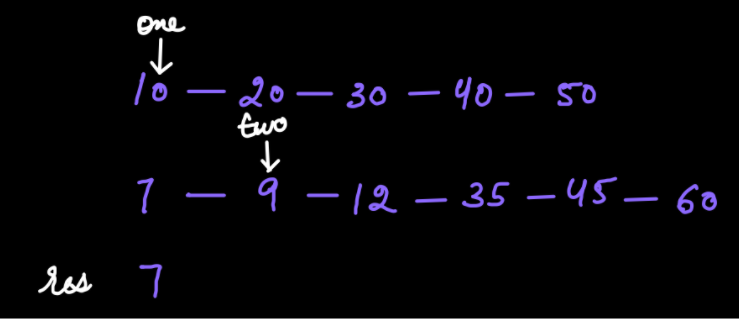 one
10 — 20 — 30 — 40 — 50
two
7 — 9 — 12 — 35 — 45 — 60
res 7